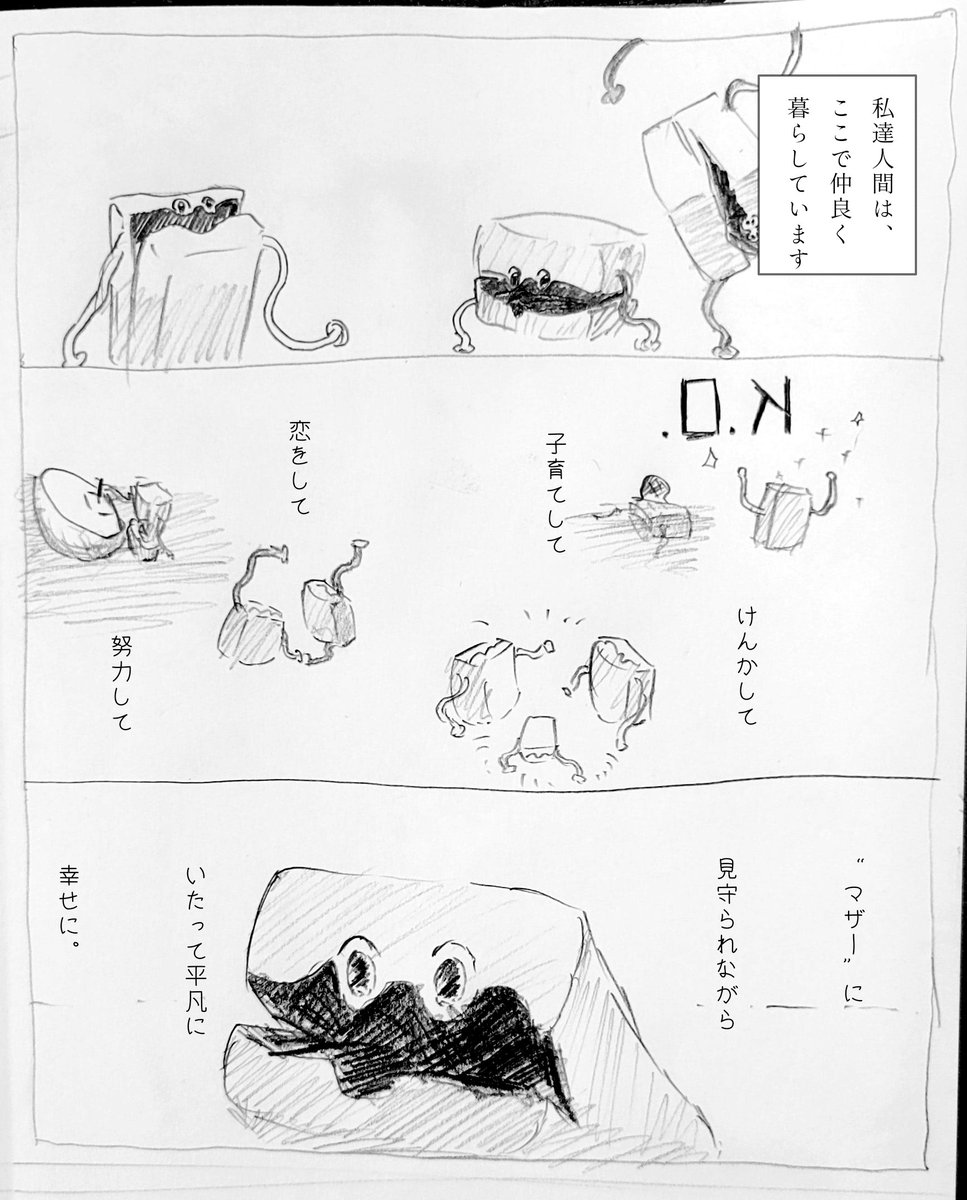 私達人間は、
ここで仲良く
暮らしています
K.O.
けんかして
子育てして
恋をして
努力して
“マザー”に
見守られながら
いたって平凡に
幸せに。